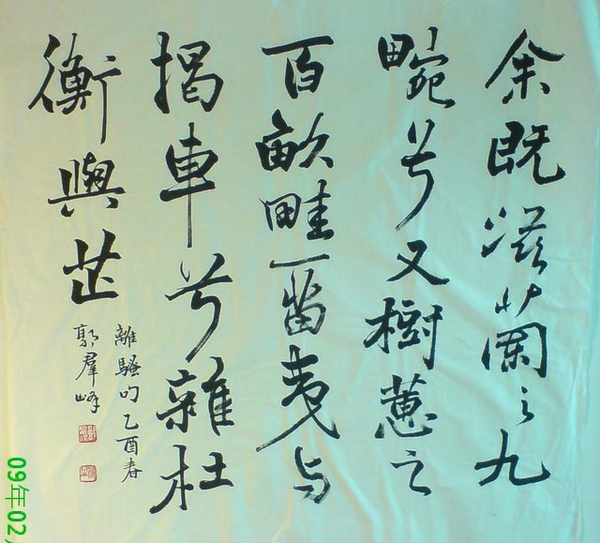 余既滋蘭之九
畹兮又樹蕙之
百畝畦留夷与
揭車兮雜杜
衡與芷
離騷句乙酉春
郭羣峰
09年02